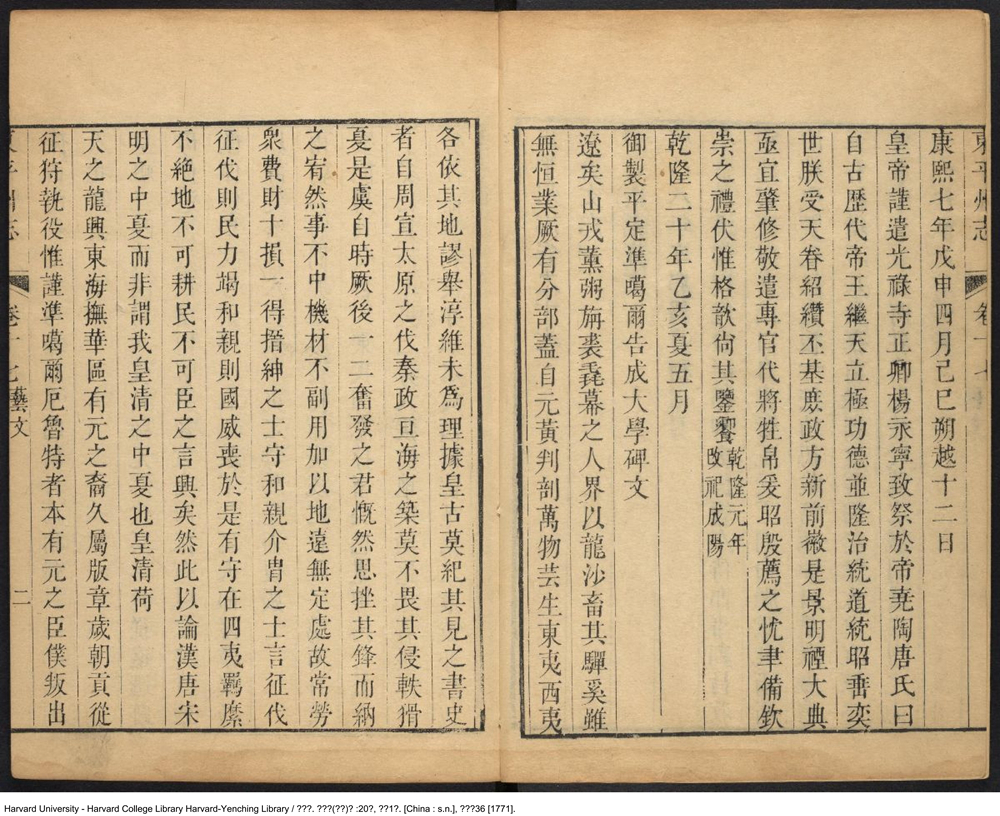 東平州志
卷十七
康熙七年戊申四月己巳朔越十二日
皇帝謹遣光祿寺正卿楊永寧致祭於帝堯陶唐氏曰
自古歷代帝王繼天立極功德並隆治統道統昭垂奕
世朕受天眷紹纘丕基庶政方新前徽是景明禋大典
亟宜肇修敬遣專官代將牲帛爰昭殷薦之忱聿備欽
崇之禮伏惟格歆尙其鑒饗乾隆元年
改祀成陽
乾隆二十年乙亥夏五月
御製平定準噶爾告成大學碑文
遼矣山戎薰粥旃裘毳幕之人界以龍沙畜其驒奚雖
無恒業厥有分部蓋自元黃判剖萬物芸生東夷西夷
各依其地謬舉淳維未爲理據皇古莫紀其見之書史
者自周宣太原之伐秦政亘海之築莫不畏其侵軼猾
夏是虞自時厥後一二奮發之君慨然思挫其鋒而納
之宥然事不中機材不副用加以地遠無定處故常勞
衆費財十損一得搢紳之士守和親介胄之士言征伐
征伐則民力竭和親則國威喪於是有守在四夷羈縻
不絕地不可耕民不可臣之言興矣然此以論漢唐宋
明之中夏而非謂我皇清之中夏也皇清荷
天之龍興東海撫華區有元之裔久屬版章歲朝貢從
征狩執役惟謹準噶爾厄魯特者本有元之臣僕叛出
東平州志
卷十七
藝文
二
Harvard University - Harvard College Library Harvard-Yenching Library / ???. ???(??)? :20?, ??1?. [China : s.n.], ???36 [1771].